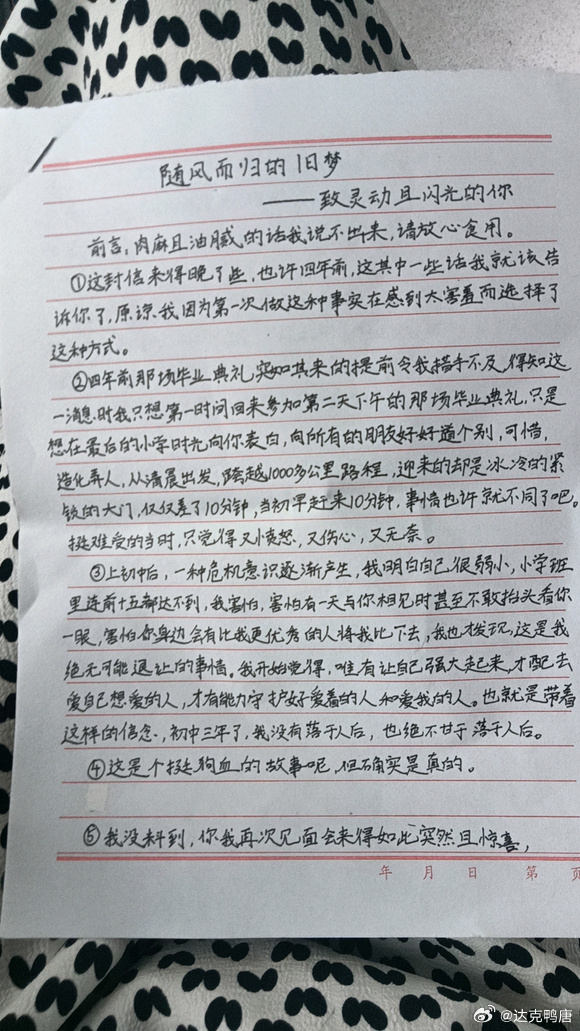 随风而归的旧梦
——致灵动且闪光的你
前言,肉麻且油腻的话我说不出来,请放心食用。
①这封信来得晚了些,也许四年前,这其中一些话我就该告
诉你了,原谅我因为第一次做这种事实在感到太害羞而选择了
这种方式。
②四年前那场毕业典礼突如其来的提前令我措手不及,得知这
一消息时我只想第一时间回来参加第二天下午的那场毕业典礼,只是
想在最后的小学时光向你表白,向所有的朋友好好道个别,可惜,
造化弄人,从清晨出发,跨越1000多公里路程,迎来的却是冰冷的紧
锁的大门,仅仅差了10分钟,当初早赶来10分钟,事情也许就不同了吧。
挺难受的当时,只觉得又愤怒,又伤心,又无奈。
③上初中后,一种危机意识逐渐产生,我明白自己很弱小,小学班
里连前十五都达不到,我害怕,害怕有一天与你相见时甚至不敢抬头看你
一眼,害怕你身边会有比我更优秀的人将我比下去,我也才发现,这是我
绝无可能退让的事情。我开始觉得,唯有让自己强大起来,才配去
爱自己想爱的人,才有能力守护好爱着的人和爱我的人。也就是带着
这样的信念,初中三年了,我没有落于人后,也绝不甘于落于人后。
④这是个挺狗血的故事呢,但确实是真的。
⑤我没料到,你我再次见面会来得如此突然且惊喜,
年 月 日 第 页
@达克鸭唐